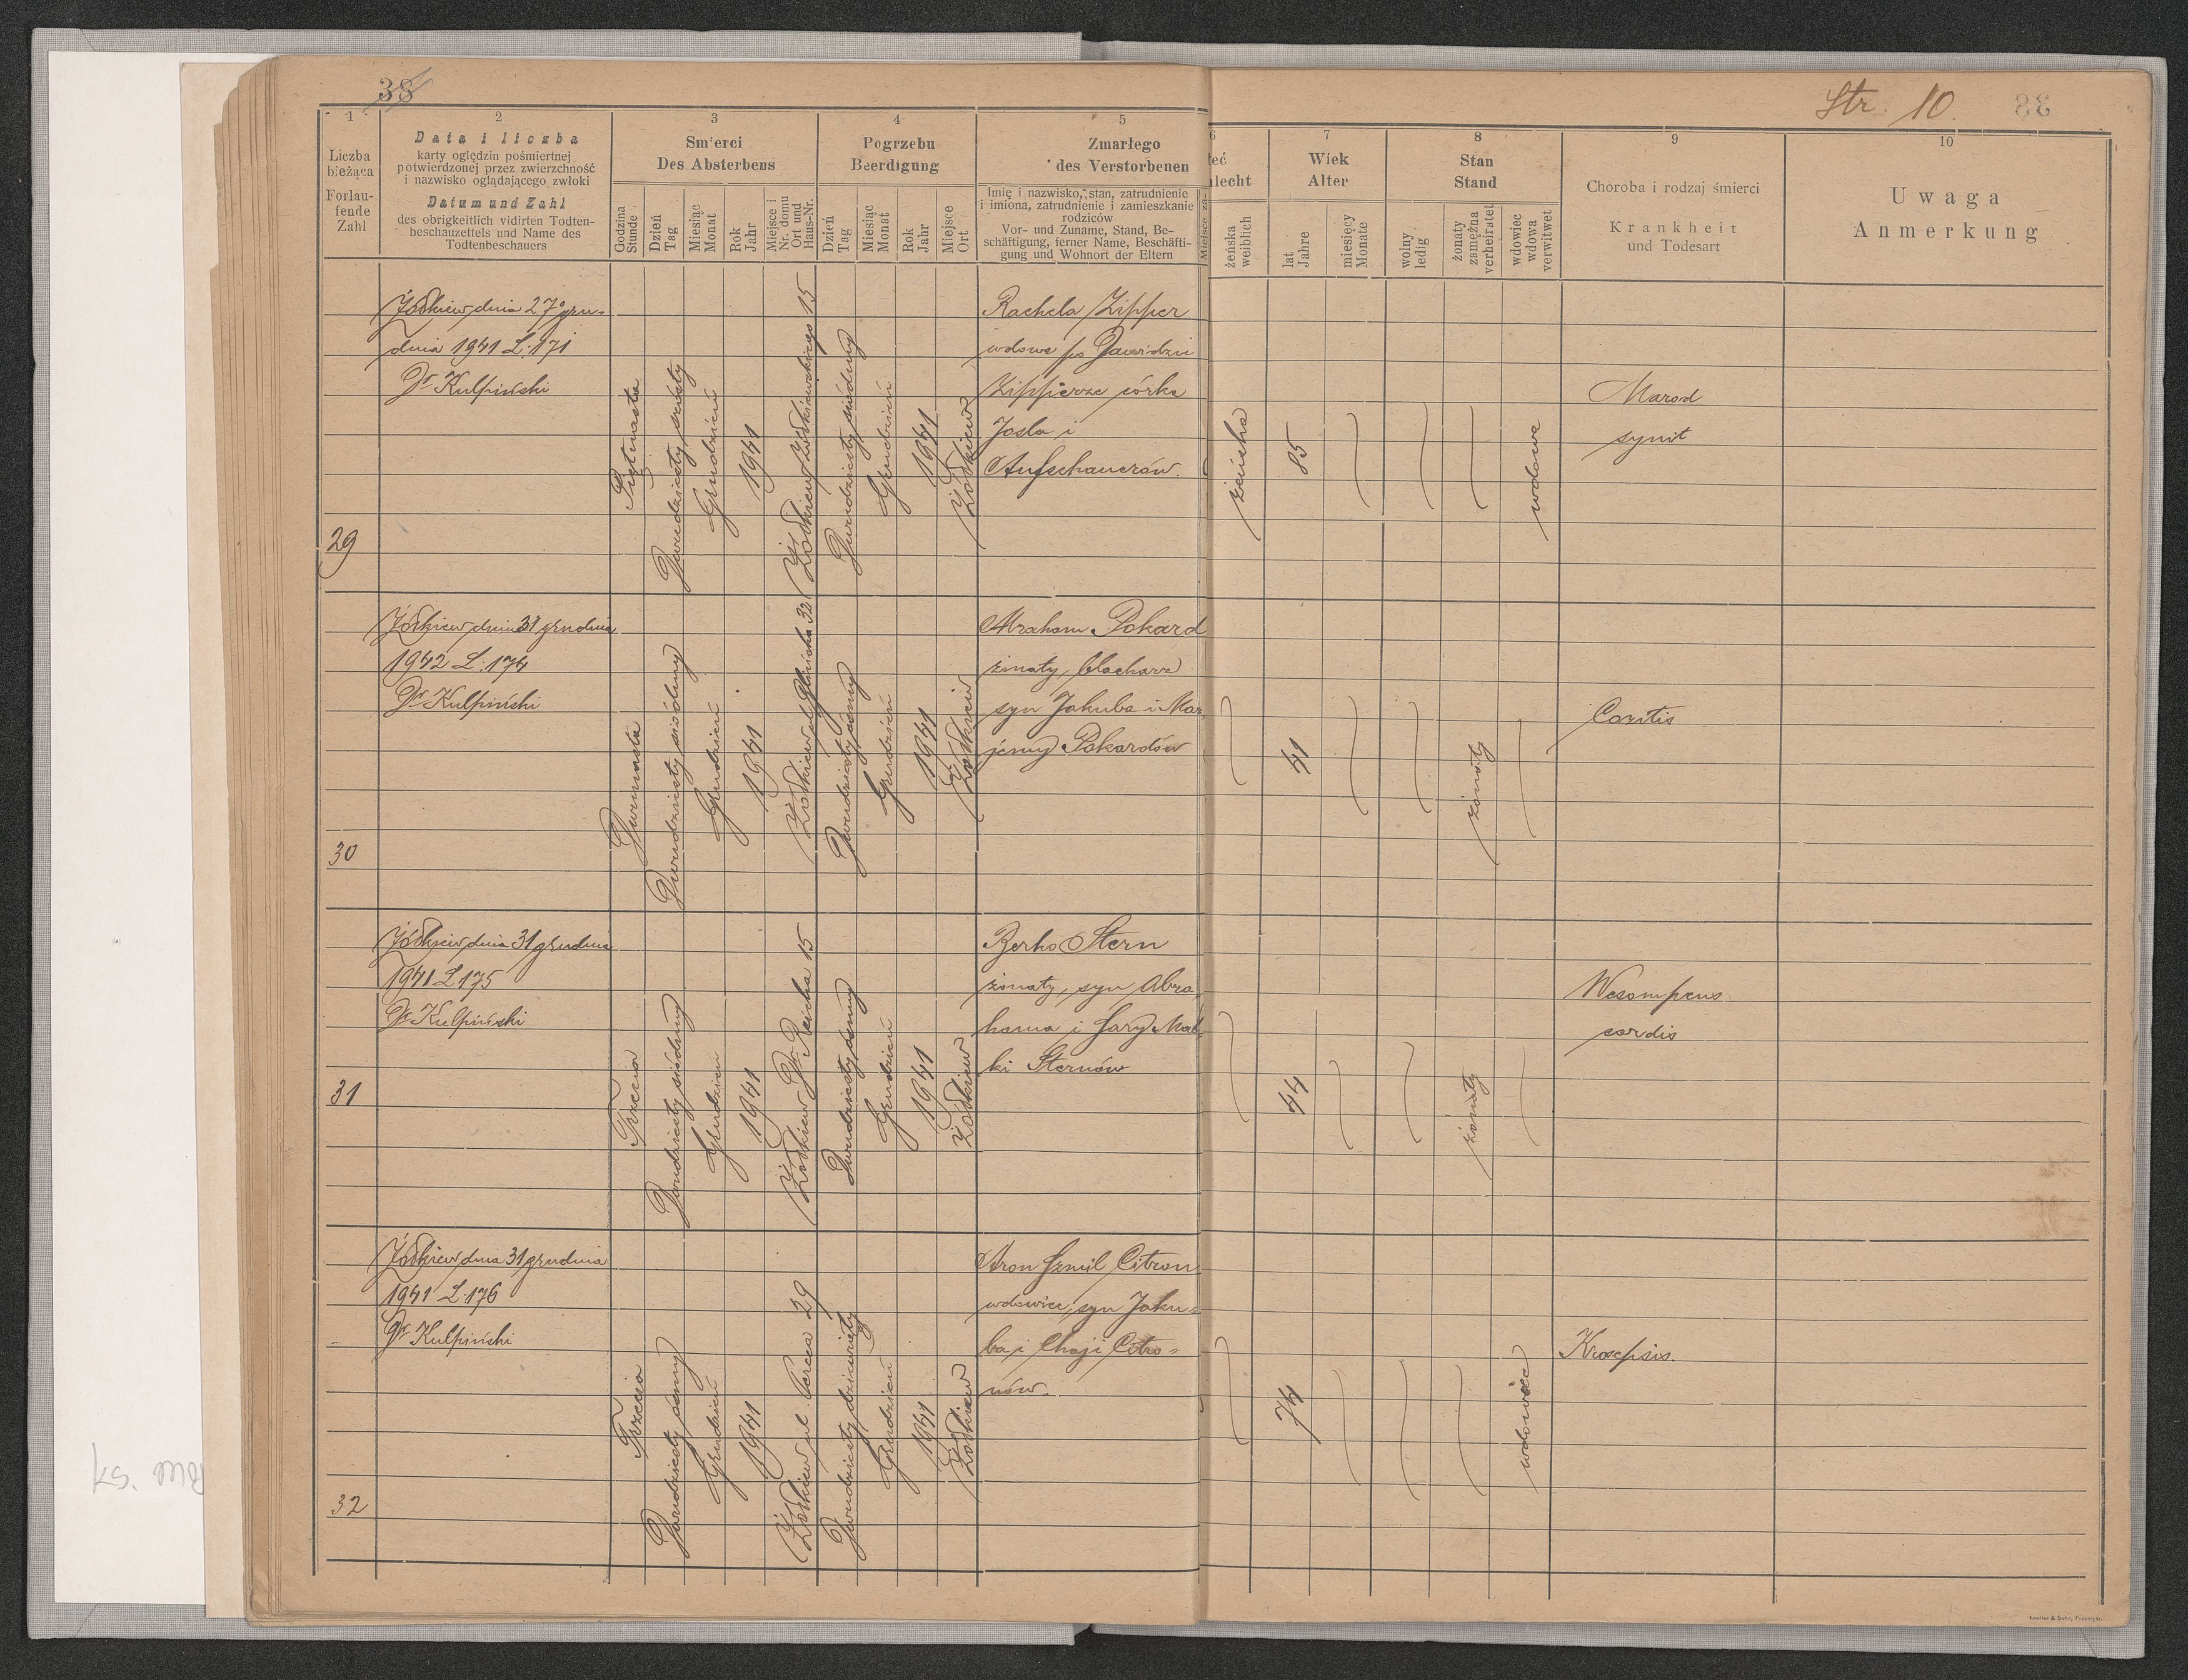 38
Str. 10.
1
2
3
4
5
6
7
8
9
10
Liczba
bieżąca
Forlau-
fende
Zahl
Data i liczba
karty oględzin pośmiertnej
potwierdzonej przez zwierzchność
i nazwisko oglądającego zwłoki
Datum und Zahl
des obrigkeitlich vidirten Todten-
beschauzettels und Name des
Todtenbeschauers
Smierci
Des Absterbens
Godzina
Stunde
Dzień
Tag
Miesiąc
Monat
Rok
Jahr
Miejsce i
Nr. domu
Ort und
Haus-Nr.
Pogrzebu
Beerdigung
Dzień
Tag
Miesiąc
Monat
Rok
Jahr
Miejsce
Ort
Zmarłego
des Verstorbenen
Imię i nazwisko, stan, zatrudnienie
i imiona, zatrudnienie i zamieszkanie
rodziców
Vor- und Zuname, Stand, Be-
schäftigung, ferner Name, Beschäfti-
gung und Wohnort der Eltern
Miejsce za-
łeć
hlecht
żeńska
weiblich
Wiek
Alter
lat
Jahre
miesięcy
Monate
Stan
Stand
wolny
ledig
żonaty
zamężna
verheiratet
wdowiec
wdowa
verwitwet
Choroba i rodzaj śmierci
Krankheit
und Todesart
Uwaga
Anmerkung
29
Żółkiew dnia 27 gru-
dnia 1941 L: 171
Dr Kulpiński
Piętnasta
Dwudziesty szósty
Grudzień
1941
Żółkiew, Żółkiewskiego 15
Dwudziesty siódmy
Grudzień
1941
Żółkiew
Rachela Zipper
wdowa po Dawidzie
Zipperze córka
Josla i
Aufschauerów.
żeńska
85
wdowa
Marod
synit
30
Żółkiew dnia 31 grudnia
1942 L: 174
Dr Kulpiński
Dwunasta
Dwudziesty siódmy
Grudzień
1941
Żółkiew ul. Glińska 32
Dwudziesty ósmy
Grudzień
1941
Żółkiew
Abraham Pokard
żonaty, blacharz
syn Jakuba i Mar
jemy Pokardów
41
żonaty
Caritis
31
Żółkiew dnia 31 grudnia
1941 L 175
Dr Kulpiński
Trzecia
Dwudziesty siódmy
Grudzień
1941
Żółkiew Dr. Reicha 15
Dwudziesty ósmy
Grudzień
1941
Żółkiew
Berko Stern
żonaty, syn Abra-
hama i Sary Mal
ki Sternów
44
żonaty
cordis
32
Żółkiew dnia 31 grudnia
1941 L 176
Dr Kulpiński
Trzecia
Dwudziesty ósmy
Grudzień
1941
Żółkiew ul. Pereca 29
Dwudziesty dziewiąty
Grudzień
1941
Żółkiew
Aron Szmil Citron
wdowiec, syn Jaku-
ba i Chaji Citro-
nów.
74
wdowiec